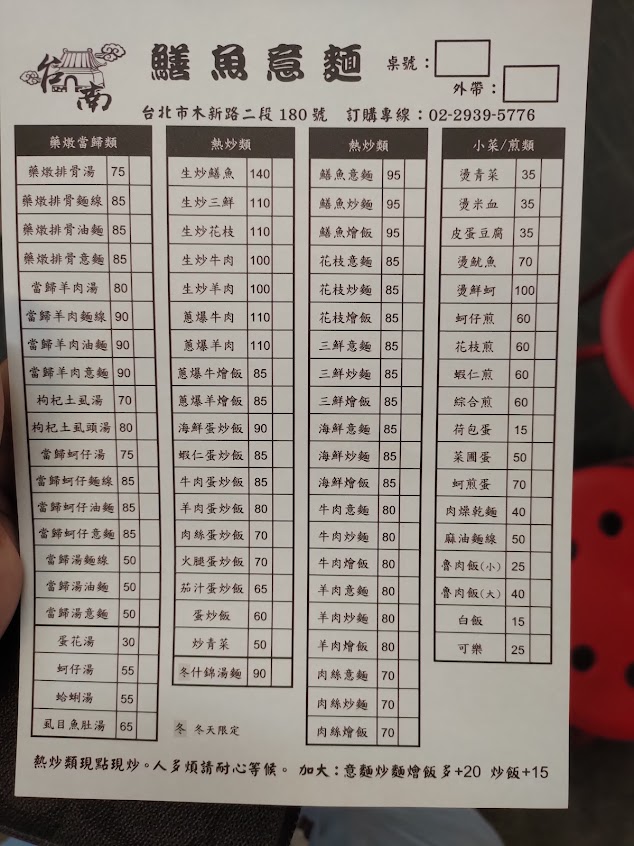 台南
鱔魚意麵
桌號：
外帶：
台北市木新路二段180號 訂購專線：02-2939-5776
藥燉當歸類
藥燉排骨湯 75
藥燉排骨麵線 85
藥燉排骨油麵 85
藥燉排骨意麵 85
當歸羊肉湯 80
當歸羊肉麵線 90
當歸羊肉油麵 90
當歸羊肉意麵 90
枸杞土虱湯 70
枸杞土虱頭湯 80
當歸蚵仔湯 75
當歸蚵仔麵線 85
當歸蚵仔油麵 85
當歸蚵仔意麵 85
當歸湯麵線 50
當歸湯油麵 50
當歸湯意麵 50
蛋花湯 30
蚵仔湯 55
蛤蜊湯 55
虱目魚肚湯 65
熱炒類
生炒鱔魚 140
生炒三鮮 110
生炒花枝 110
生炒牛肉 100
生炒羊肉 100
蔥爆牛肉 110
蔥爆羊肉 110
蔥爆牛燴飯 85
蔥爆羊燴飯 85
海鮮蛋炒飯 90
蝦仁蛋炒飯 85
牛肉蛋炒飯 85
羊肉蛋炒飯 80
肉絲蛋炒飯 70
火腿蛋炒飯 70
茄汁蛋炒飯 65
蛋炒飯 60
炒青菜 50
冬什錦湯麵 90
冬 冬天限定
熱炒類
鱔魚意麵 95
鱔魚炒麵 95
鱔魚燴飯 95
花枝意麵 85
花枝炒麵 85
花枝燴飯 85
三鮮意麵 85
三鮮炒麵 85
三鮮燴飯 85
海鮮意麵 85
海鮮炒麵 85
海鮮燴飯 85
牛肉意麵 80
牛肉炒麵 80
牛肉燴飯 80
羊肉意麵 80
羊肉炒麵 80
羊肉燴飯 80
肉絲意麵 70
肉絲炒麵 70
肉絲燴飯 70
小菜/煎類
燙青菜 35
燙米血 35
皮蛋豆腐 35
燙魷魚 70
燙鮮蚵 100
蚵仔煎 60
花枝煎 60
蝦仁煎 60
綜合煎 60
荷包蛋 15
菜圃蛋 50
蚵煎蛋 70
肉燥乾麵 40
麻油麵線 50
魯肉飯(小) 25
魯肉飯(大) 40
白飯 15
可樂 25
熱炒類現點現炒。人多煩請耐心等候。 加大：意麵炒麵燴飯多+20 炒飯+15